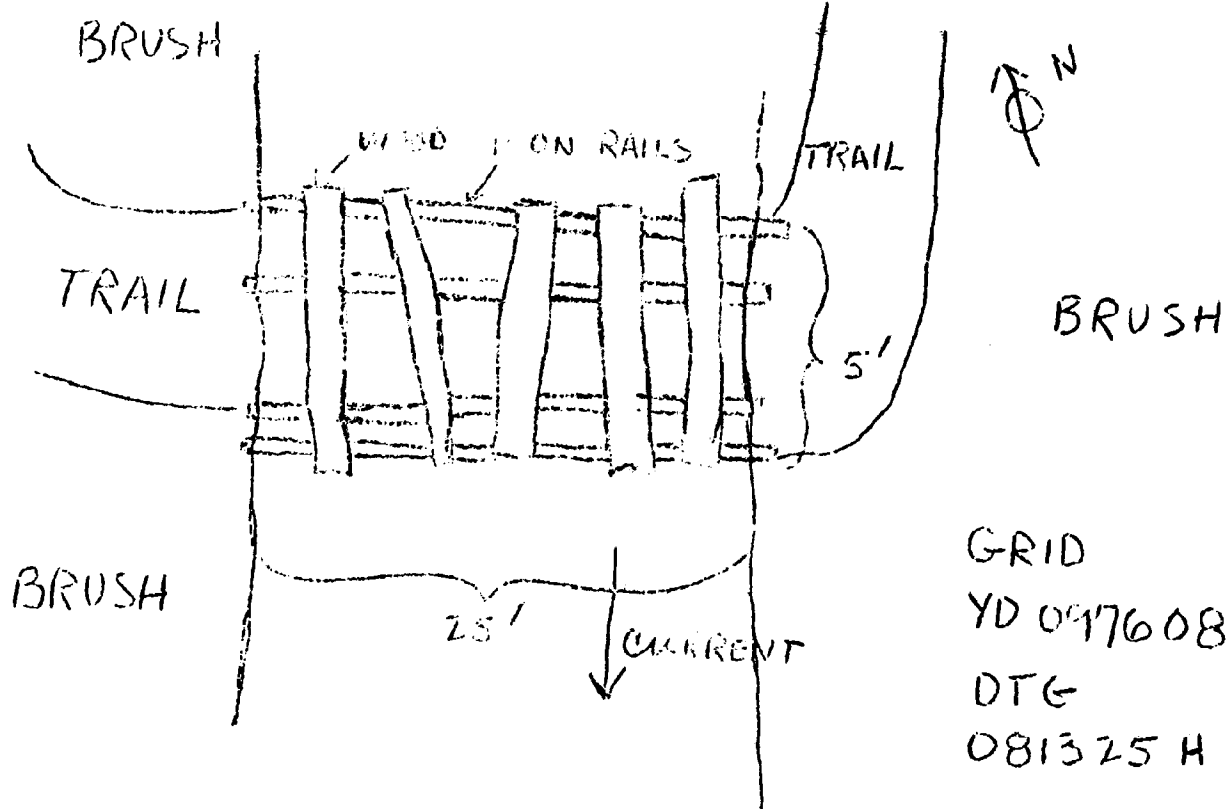 BRUSH
N
WOOD
ON RAILS
TRAIL
TRAIL
BRUSH
5'
BRUSH
25'
CURRENT
GRID
YD 097608
DTG
081325 H